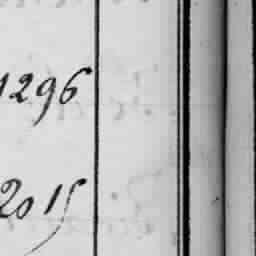 1296
2015